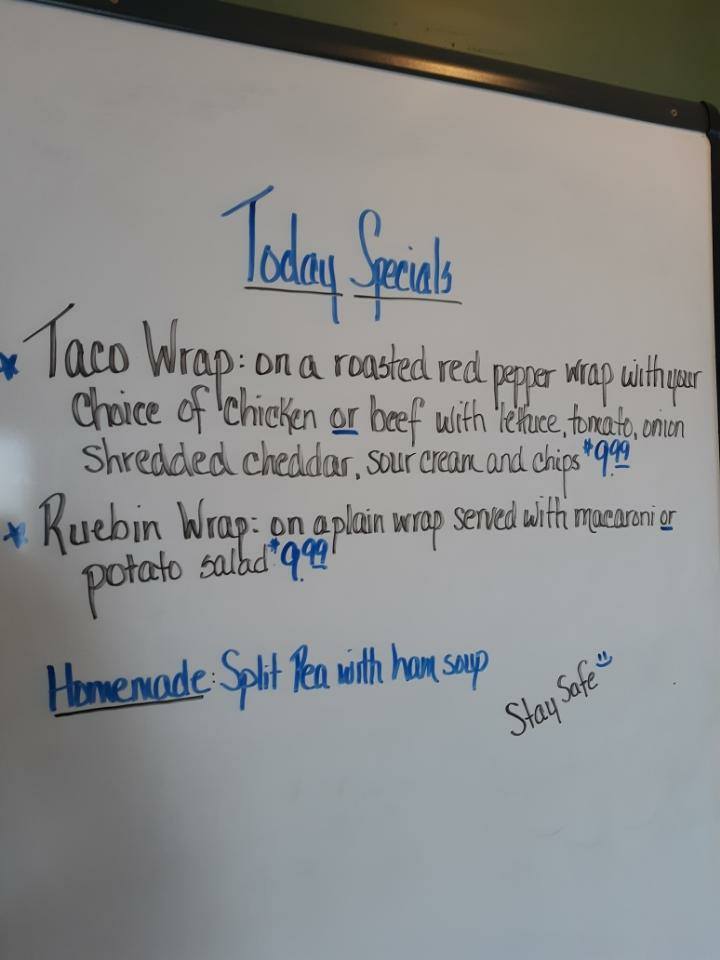 Today Specials
* Taco Wrap: on a roasted red pepper wrap with your
Choice of chicken or beef with lettuce, tomato, onion
Shredded cheddar, sour cream and chips $9.99
* Ruebin Wrap: on a plain wrap served with macaroni or
potato salad $9.99
Homemade: Split Pea with ham soup
Stay Safe